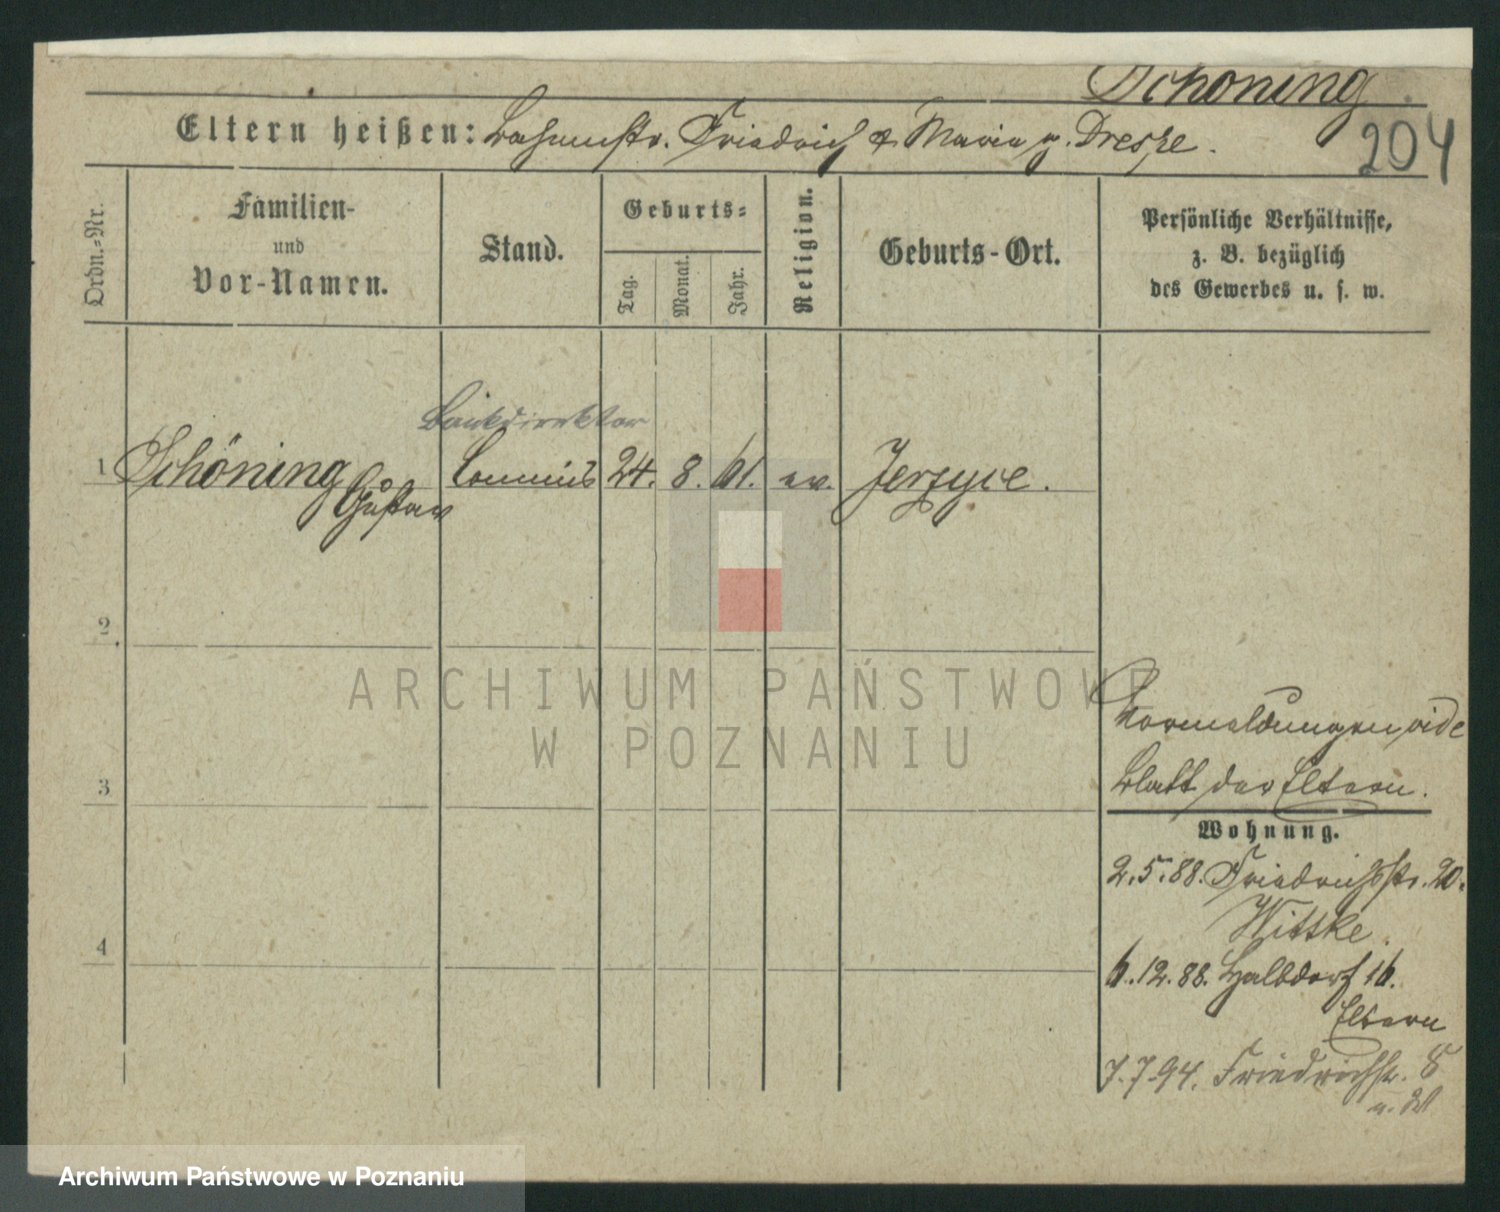 Schöning
204
Eltern heißen: Friedrich & Maria g. Dreske.
Ordn.=Nr.
Familien-
und
Vor-Namen.
Stand.
Geburts=
Tag.
Monat.
Jahr.
Religion.
Geburts-Ort.
Persönliche Verhältnisse,
z. B. bezüglich
des Gewerbes u. s. w.
Bankdirektor
1 Schöning Commis 24. 8. 61. ev. Jerzyce.
Gustav
2
3
4
Vormeldungen vide
Blatt der Eltern.
Wohnung.
2.5.88. Friedrichstr. 20.
Wittke.
6.12.88. Halbdorf 16.
Eltern
7.7.94. Friedrichstr. 8
ARCHIWUM PAŃSTWOWE
W POZNANIU
Archiwum Państwowe w Poznaniu